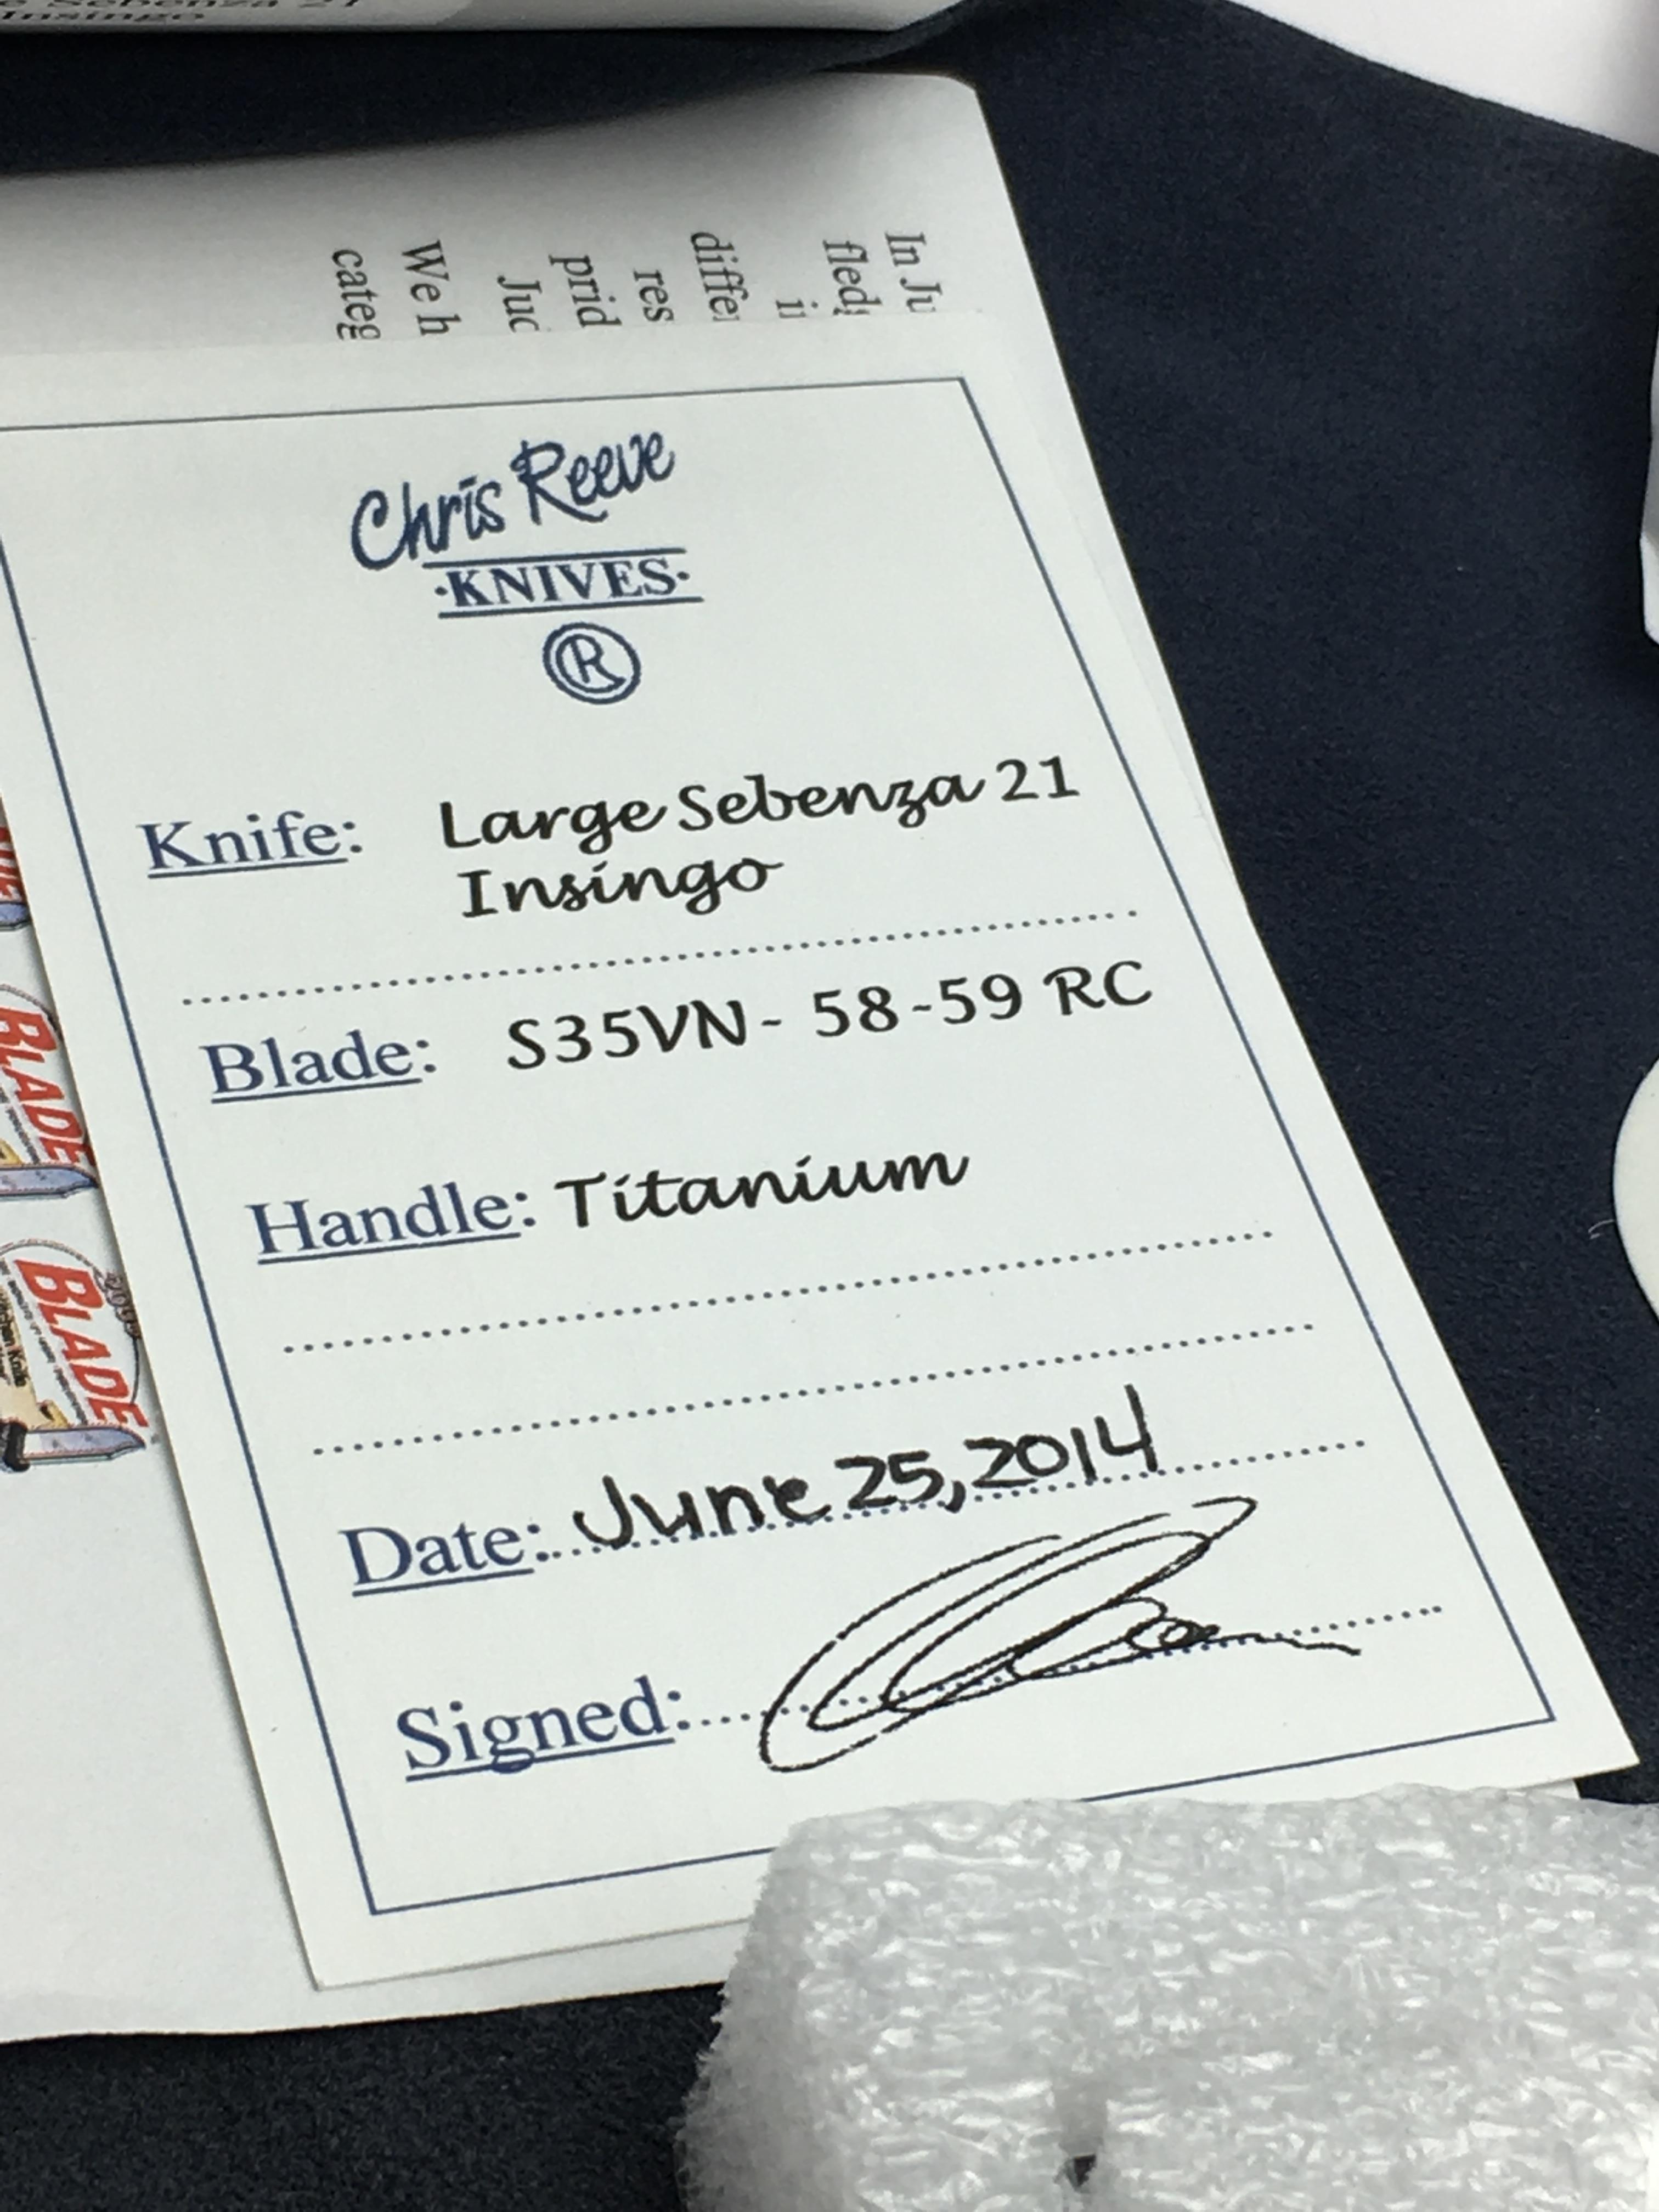 Sebenza 21
Insingo
In Ju
fledg
differ
res
prid
Juc
We h
categ
Chris Reeve
·KNIVES·
®
Knife: Large Sebenza 21
Insingo
Blade: S35VN - 58-59 RC
Handle: Titanium
Date: June 25, 2014
Signed:
BLADE
BLADE